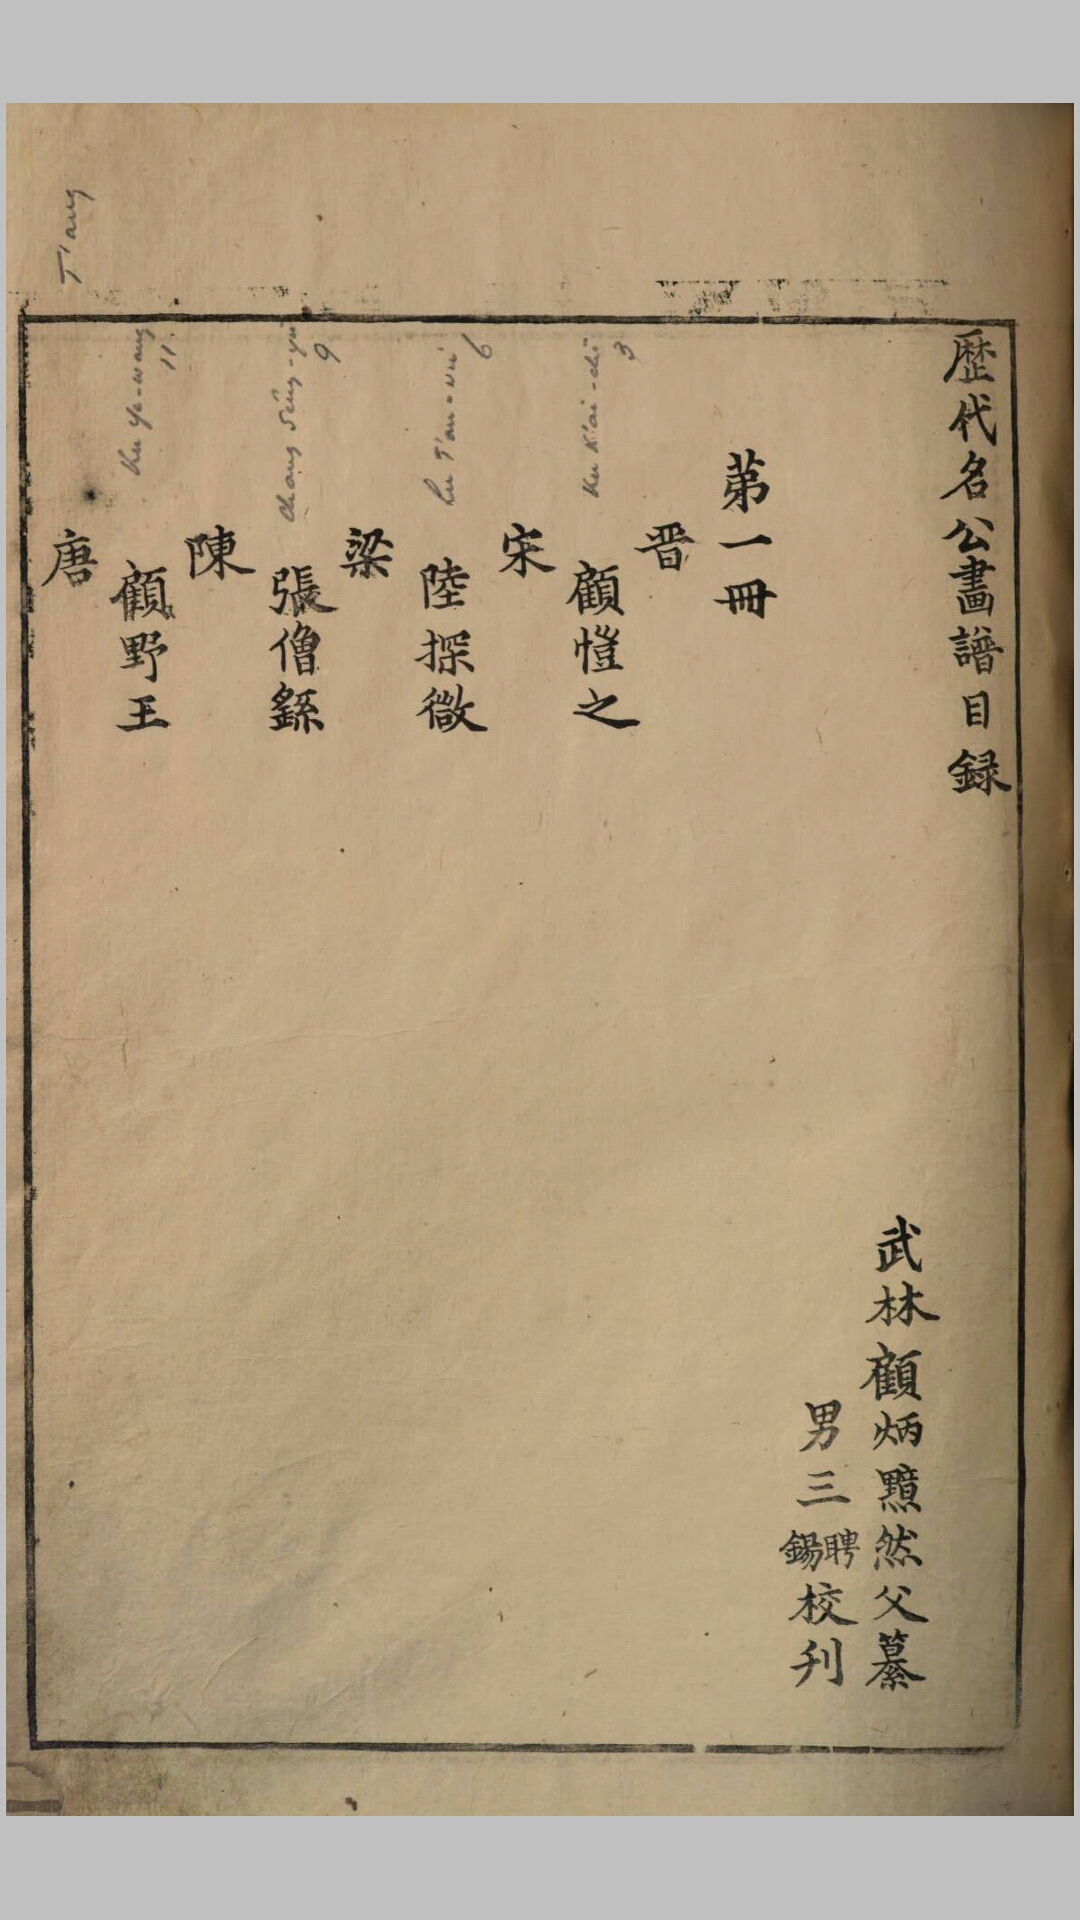 歷代名公畫譜目録
武林顧炳黯然父纂
男三聘錫校刋
苐一冊
晋
顧愷之
Ku K'ai-chi
3
宋
陸探微
Lu T'an-wei
6
梁
張僧繇
Chang Sêng-yu
9
陳
顧野王
Ku Ye-wang
11
唐
T'ang